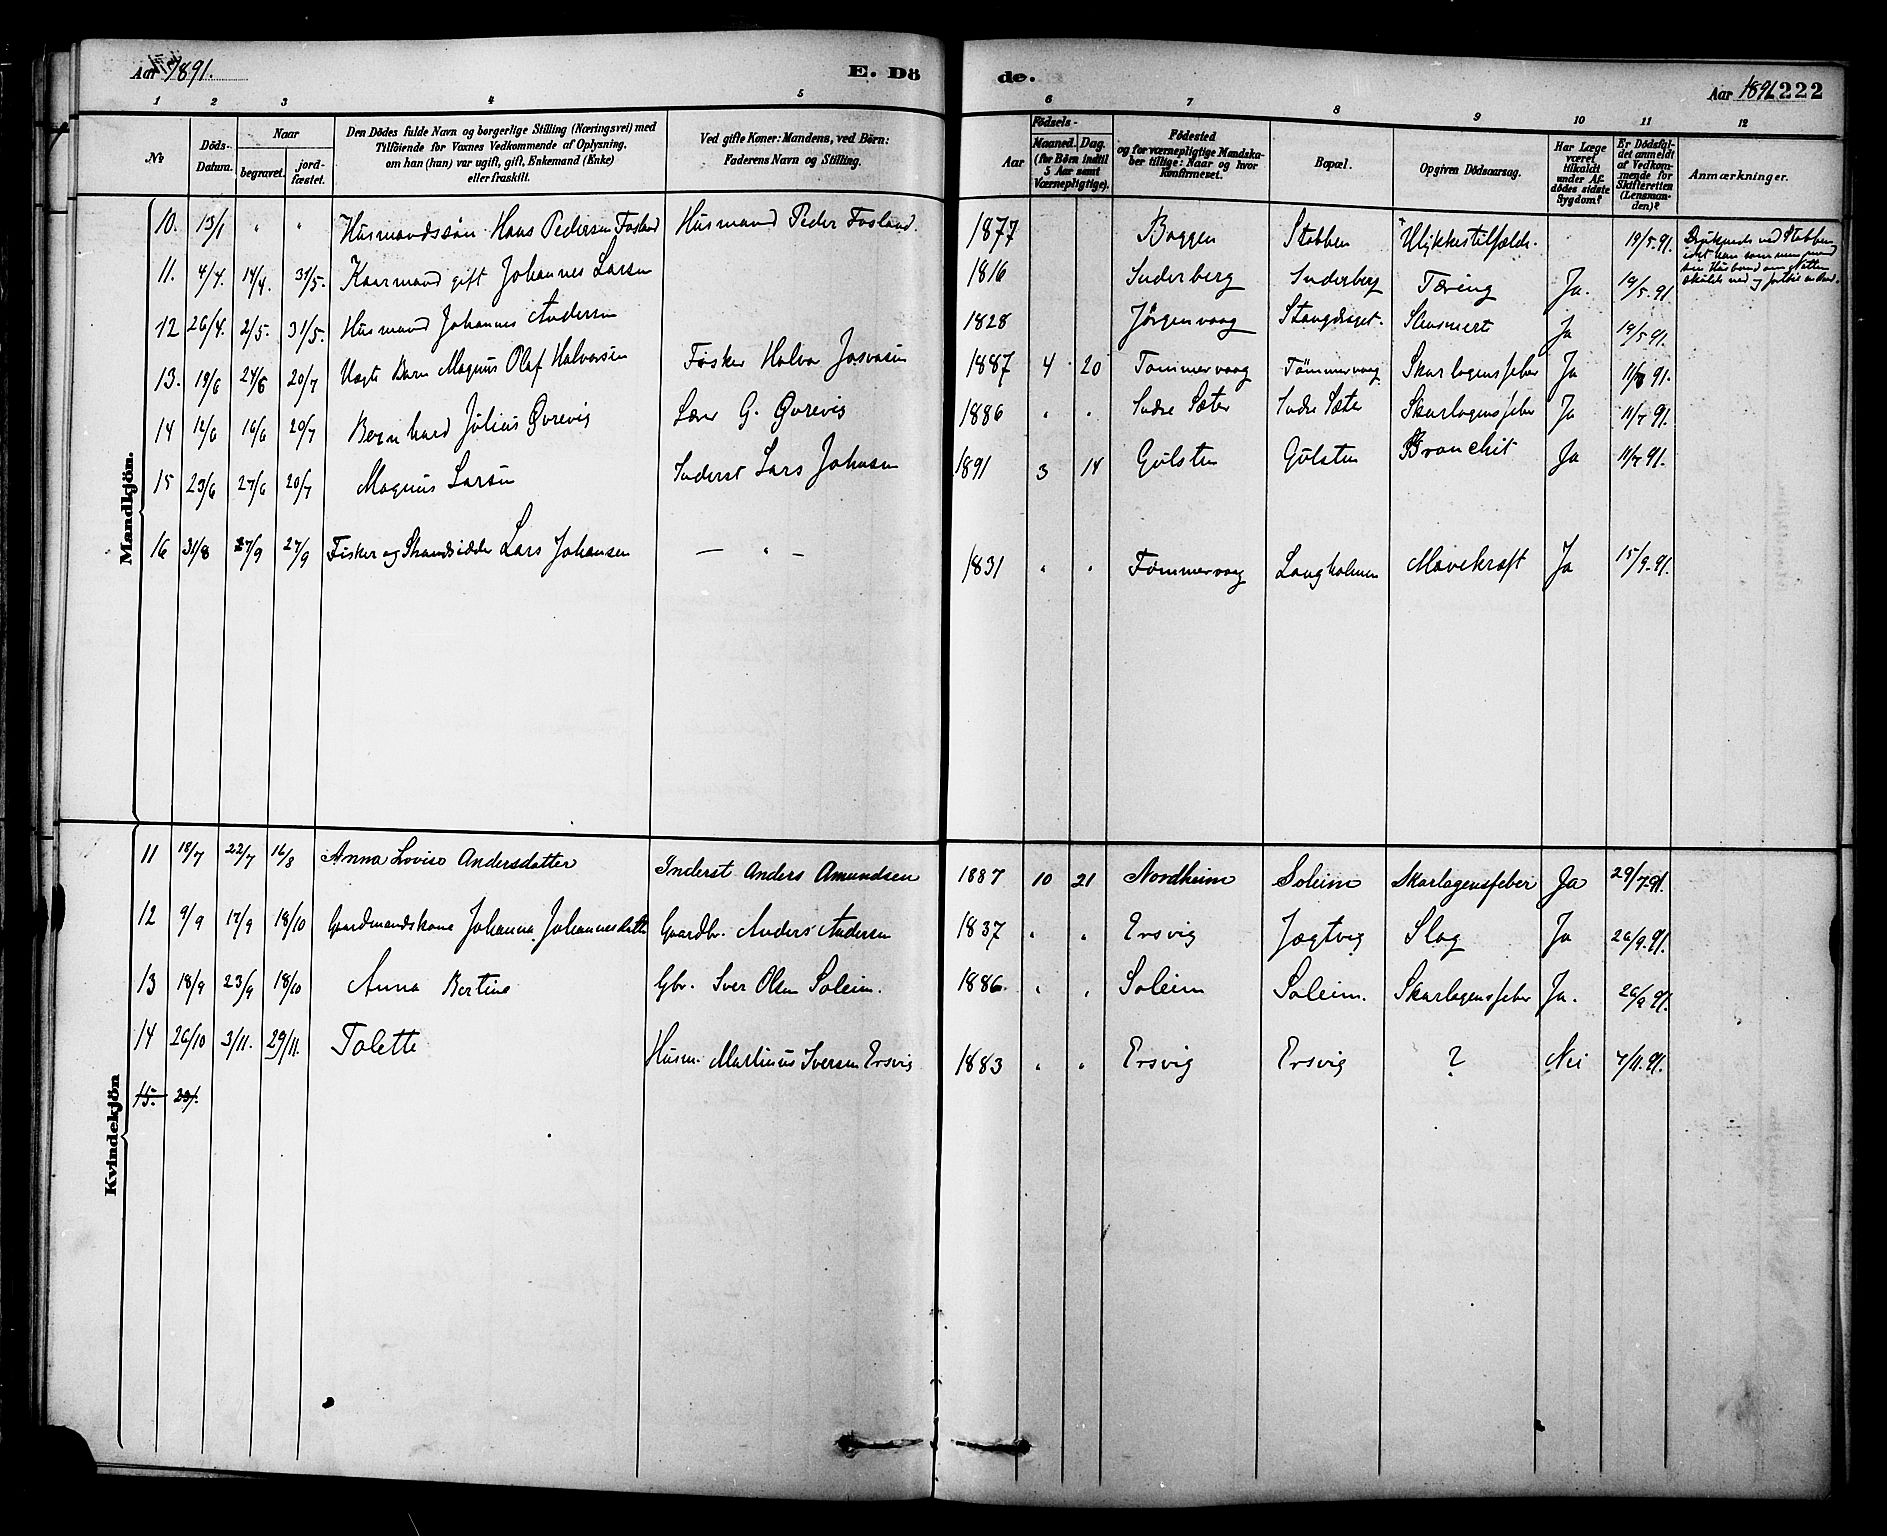 Aar 1891. E. Dö de. Aar 1891 222
1 2 3 4 5 6 7 8 9 10 11 12
No
Döds-Datum.
Naar
begravet.
jord-fæstet.
Den Dödes fulde Navn og borgerlige Stilling (Næringsvei) med
Tilföiende for Voxnes Vedkommende af Oplysning,
om han (hun) var ugift, gift, Enkemand (Enke)
eller fraskilt.
Ved gifte Koner: Mandens, ved Börn:
Faderens Navn og Stilling.
Födsels-
Aar
Maaned. Dag.
(for Börn indtil
5 Aar samt
Værnepligtige).
Födested
og for værnepligtige Mandska-
ber tillige: Naar og hvor
konfirmeret.
Bopæl.
Opgiven Dödsaarsag.
Har Læge
været
tilkaldt
under Af-
dödes sidste
Sygdom?
Er Dödsfal-
det anmeldt
af Vedkom-
mende for
Skifteretten
(Lensman-
den)?
Anmærkninger.
Mandkjön.
10. 13/1 " " Husmandssön Hans Pedersen Fosland Husmand Peder Fosland. 1877 Baggen Stobben Ulykkestilfælde. 19/5.91.
11. 4/4. 14/4. 31/5. Kaarmand gift Johannes Larsen 1816 Inderberg Inderberg Tæring Ja. 19/5.91.
12 26/4. 2/5. 31/5. Husmand Johannes Andersen 1828 Jörgenvaag Ja 19/5.91.
13. 19/6 24/6 20/7 Uægte Barn Magnus Olaf Halvorsen Fisker Halvor 1887 4 20 Tømmervaag Tømmervaag Skarlagensfeber Ja 11/7 91.
14 12/6 16/6 20/7 Bernhard Julius Qvrevig Lærer G. Qvrevig 1886 " " Indre Sæter Indre Sæter Skarlagensfeber Ja 11/7 91.
15 23/6 27/6 20/7 Magnus Larsen Inderst Lars Johansen 1891 3 14 Gulsten Gulsten Bronchit Ja 11/7 91.
16 31/8 27/9 27/9 Fisker og Strandsidder Lars Johansen — " — 1831 " " Tømmervaag Langholmen Mavekræft Ja 15/9.91.
Kvindekjön
11 18/7 22/7 16/8 Anna Lovise Andersdatter Inderst Anders Amundsen 1887 10 21 Nordheim Soleim Skarlagensfeber Ja 29/7.91.
12 9/9 17/9 18/10 Gaardmandskone Johanna Johannesdatter Gaardbr. Anders Andersen 1837 " " Ersvig Jægtvig Slag Ja 26/9.91.
13 18/9 23/9 18/10 Anna Bertine Gbr. Iver Olsen Soleim. 1886. " " Soleim Soleim. Skarlagensfeber Ja. 26/9 91.
14 26/10 3/11. 29/11. Tolette Husm. Martinus Iversen Ersvig 1883 " " Ersvig Ersvig ? Nei 7/11.91.
15. 23/.